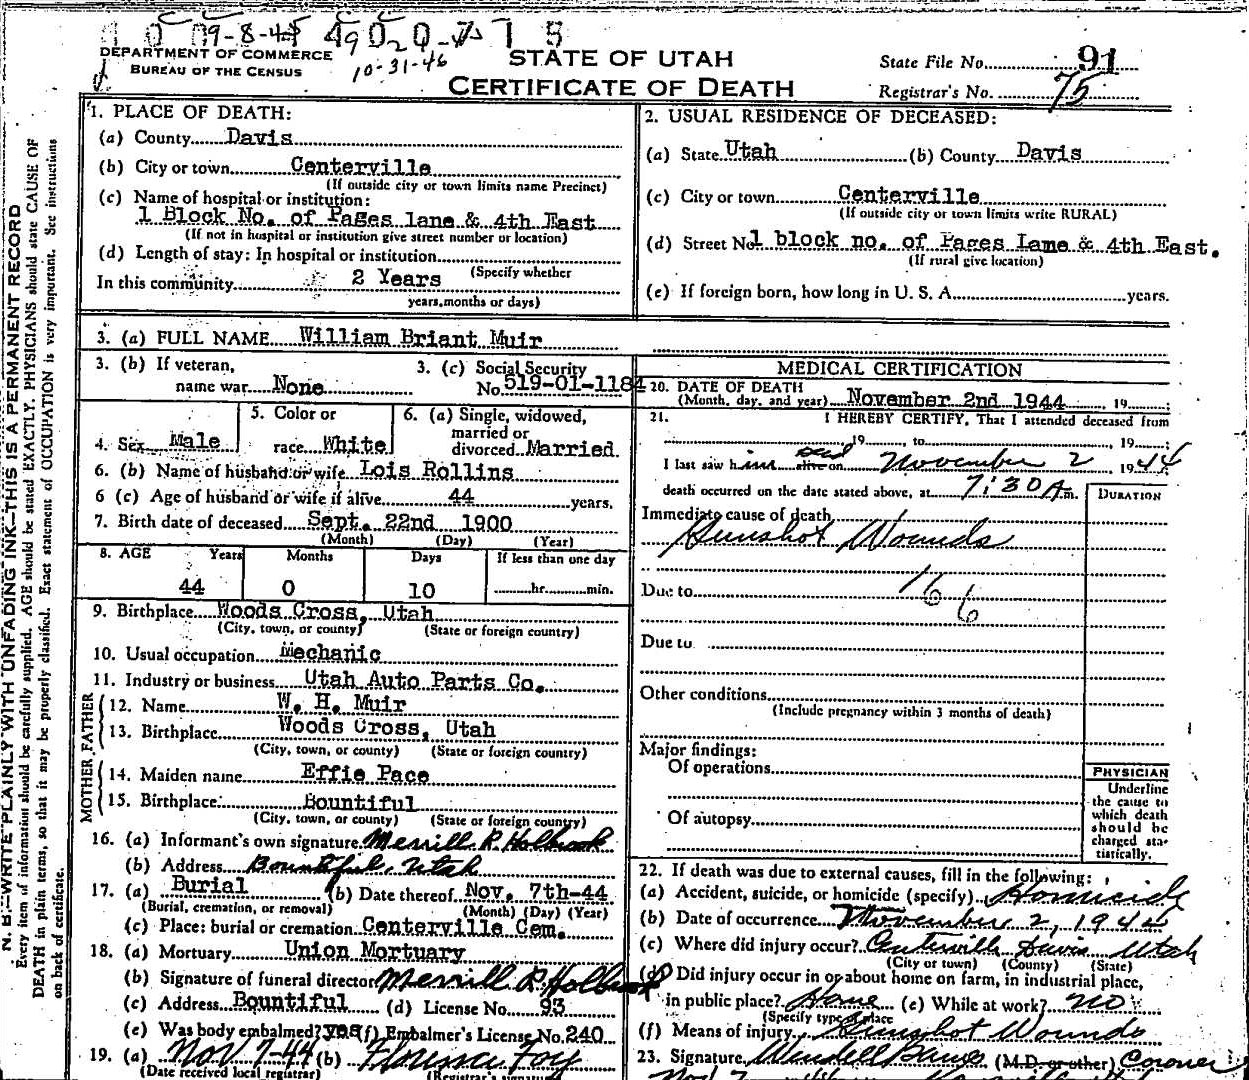 9-8-45
DEPARTMENT OF COMMERCE
BUREAU OF THE CENSUS
10-31-46
STATE OF UTAH
CERTIFICATE OF DEATH
State File No. 91
Registrar's No. 75
N. B.—WRITE PLAINLY WITH UNFADING INK—THIS IS A PERMANENT RECORD
Every item of information should be carefully supplied. AGE should be stated EXACTLY. PHYSICIANS should state CAUSE OF
DEATH in plain terms, so that it may be properly classified. Exact statement of OCCUPATION is very important. See instructions
on back of certificate.
1. PLACE OF DEATH:
(a) County Davis
(b) City or town Centerville
(If outside city or town limits name Precinct)
(c) Name of hospital or institution:
1 Block No. of Pages lane & 4th East
(If not in hospital or institution give street number or location)
(d) Length of stay: In hospital or institution
(Specify whether
In this community 2 Years
years, months or days)
2. USUAL RESIDENCE OF DECEASED:
(a) State Utah (b) County Davis
(c) City or town Centerville
(If outside city or town limits write RURAL)
(d) Street No. 1 block no. of Pages Lane & 4th East.
(If rural give location)
(e) If foreign born, how long in U. S. A. years.
3. (a) FULL NAME William Briant Muir
3. (b) If veteran,
name war None
3. (c) Social Security
No. 519-01-1184
4. Sex Male
5. Color or
race White
6. (a) Single, widowed,
married or
divorced Married
6. (b) Name of husband or wife Lois Rollins
6 (c) Age of husband or wife if alive 44 years.
7. Birth date of deceased Sept. 22nd 1900
(Month) (Day) (Year)
8. AGE Years Months Days If less than one day
44 0 10 hr. min.
9. Birthplace Woods Cross, Utah
(City, town, or county) (State or foreign country)
10. Usual occupation Mechanic
11. Industry or business Utah Auto Parts Co.
FATHER
12. Name W. H. Muir
13. Birthplace Woods Cross, Utah
(City, town, or county) (State or foreign country)
MOTHER
14. Maiden name Effie Pace
15. Birthplace Bountiful
(City, town, or county) (State or foreign country)
16. (a) Informant's own signature Merrill R. Holbrook
(b) Address Bountiful, Utah
17. (a) Burial (b) Date thereof Nov. 7th-44
(Burial, cremation, or removal) (Month) (Day) (Year)
(c) Place: burial or cremation Centerville Cem.
18. (a) Mortuary Union Mortuary
(b) Signature of funeral director Merrill R. Holbrook
(c) Address Bountiful (d) License No. 93
(e) Was body embalmed? yes (f) Embalmer's License No. 240
19. (a) Nov 7-44 (b) Florence Foy
(Date received local registrar) (Registrar's signature)
MEDICAL CERTIFICATION
20. DATE OF DEATH
(Month, day, and year) November 2nd 1944, 19
21. I HEREBY CERTIFY, That I attended deceased from
19 , to , 19
I last saw him alive on dead November 2 1944
death occurred on the date stated above, at 7:30 A m.
DURATION
Immediate cause of death
Gunshot Wounds
Due to 166
Due to
Other conditions
(Include pregnancy within 3 months of death)
Major findings:
Of operations
Of autopsy
PHYSICIAN
Underline
the cause to
which death
should be
charged sta-
tistically.
22. If death was due to external causes, fill in the following:
(a) Accident, suicide, or homicide (specify) Homicide
(b) Date of occurrence November 2, 1944
(c) Where did injury occur? Centerville Davis Utah
(City or town) (County) (State)
(d) Did injury occur in or about home on farm, in industrial place,
in public place? Home (e) While at work? no
(Specify type of place
(f) Means of injury Gunshot Wounds
23. Signature (M.D. or other) Coroner